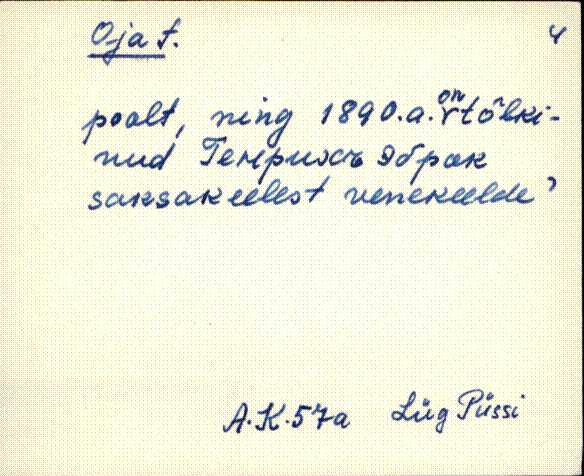 Oja t. 4
poolt, ning 1890.a. on tõlki-
nud Генрихъ Эброк
saksakeelest venekeelde
A.K.57a Lüg Püssi